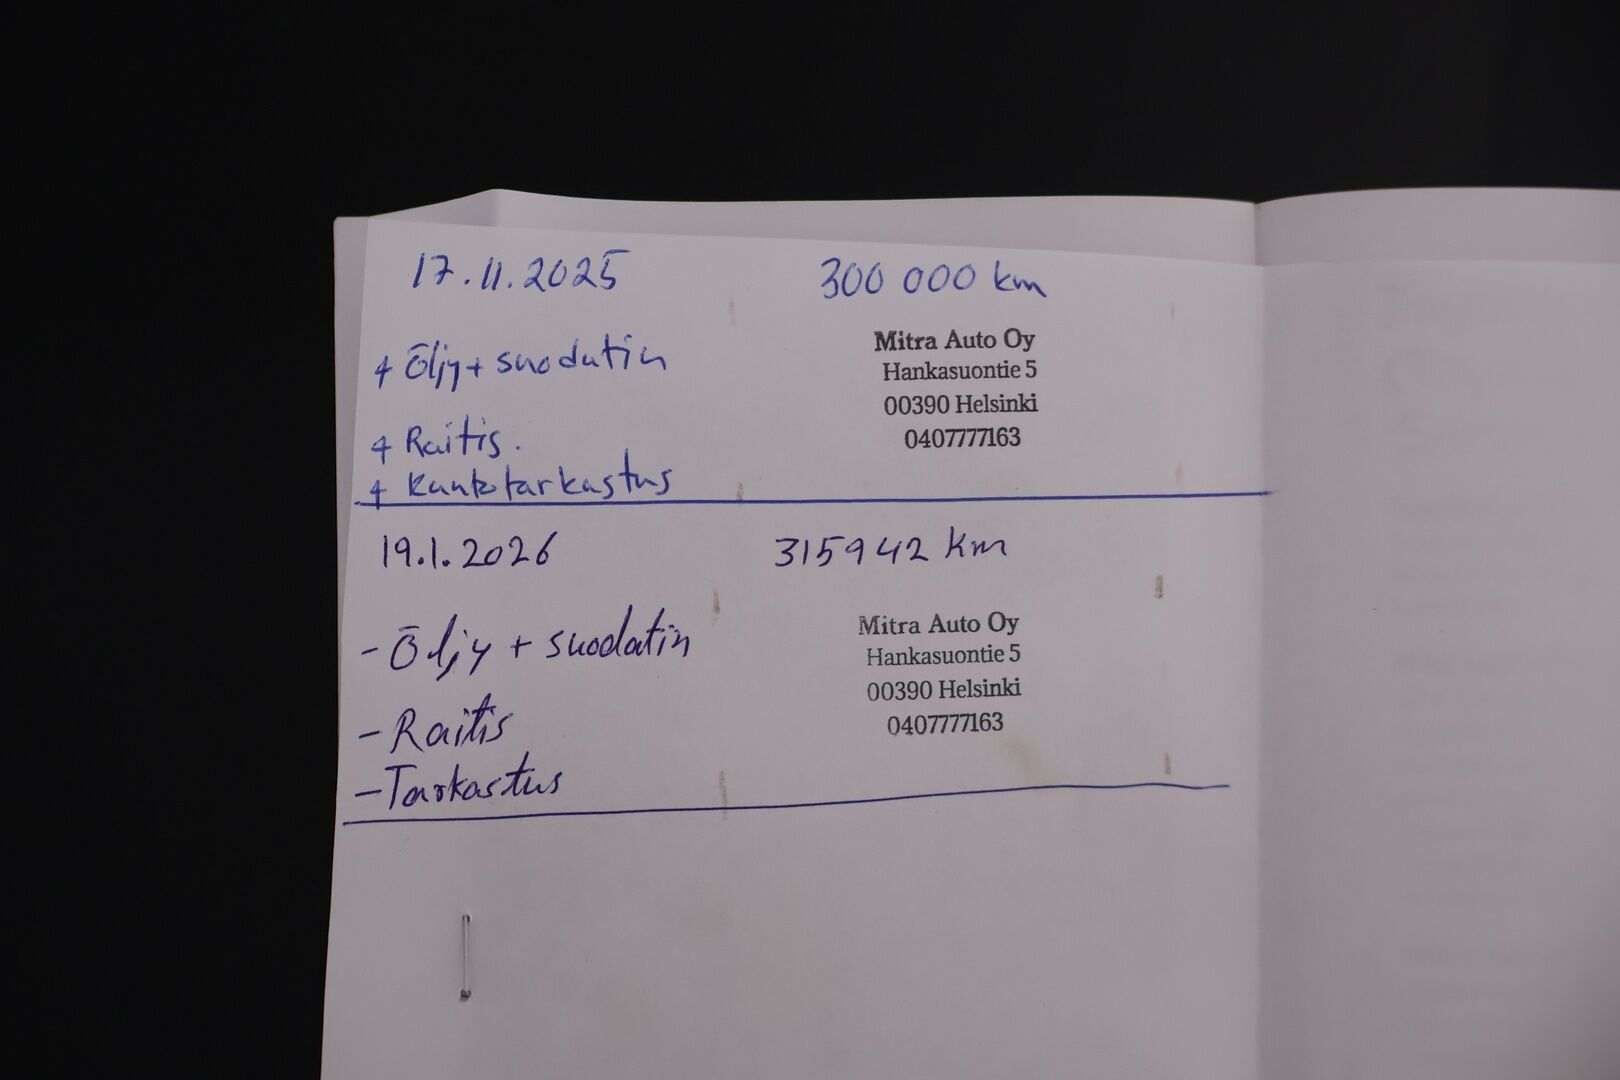 17.11.2025 300 000 km
+ Öljy + suodatin
Mitra Auto Oy
Hankasuontie 5
00390 Helsinki
0407777163
+ Raitis.
+ Kuntotarkastus
19.1.2026 315942 km
- Öljy + suodatin
Mitra Auto Oy
Hankasuontie 5
00390 Helsinki
0407777163
- Raitis
- Tarkastus